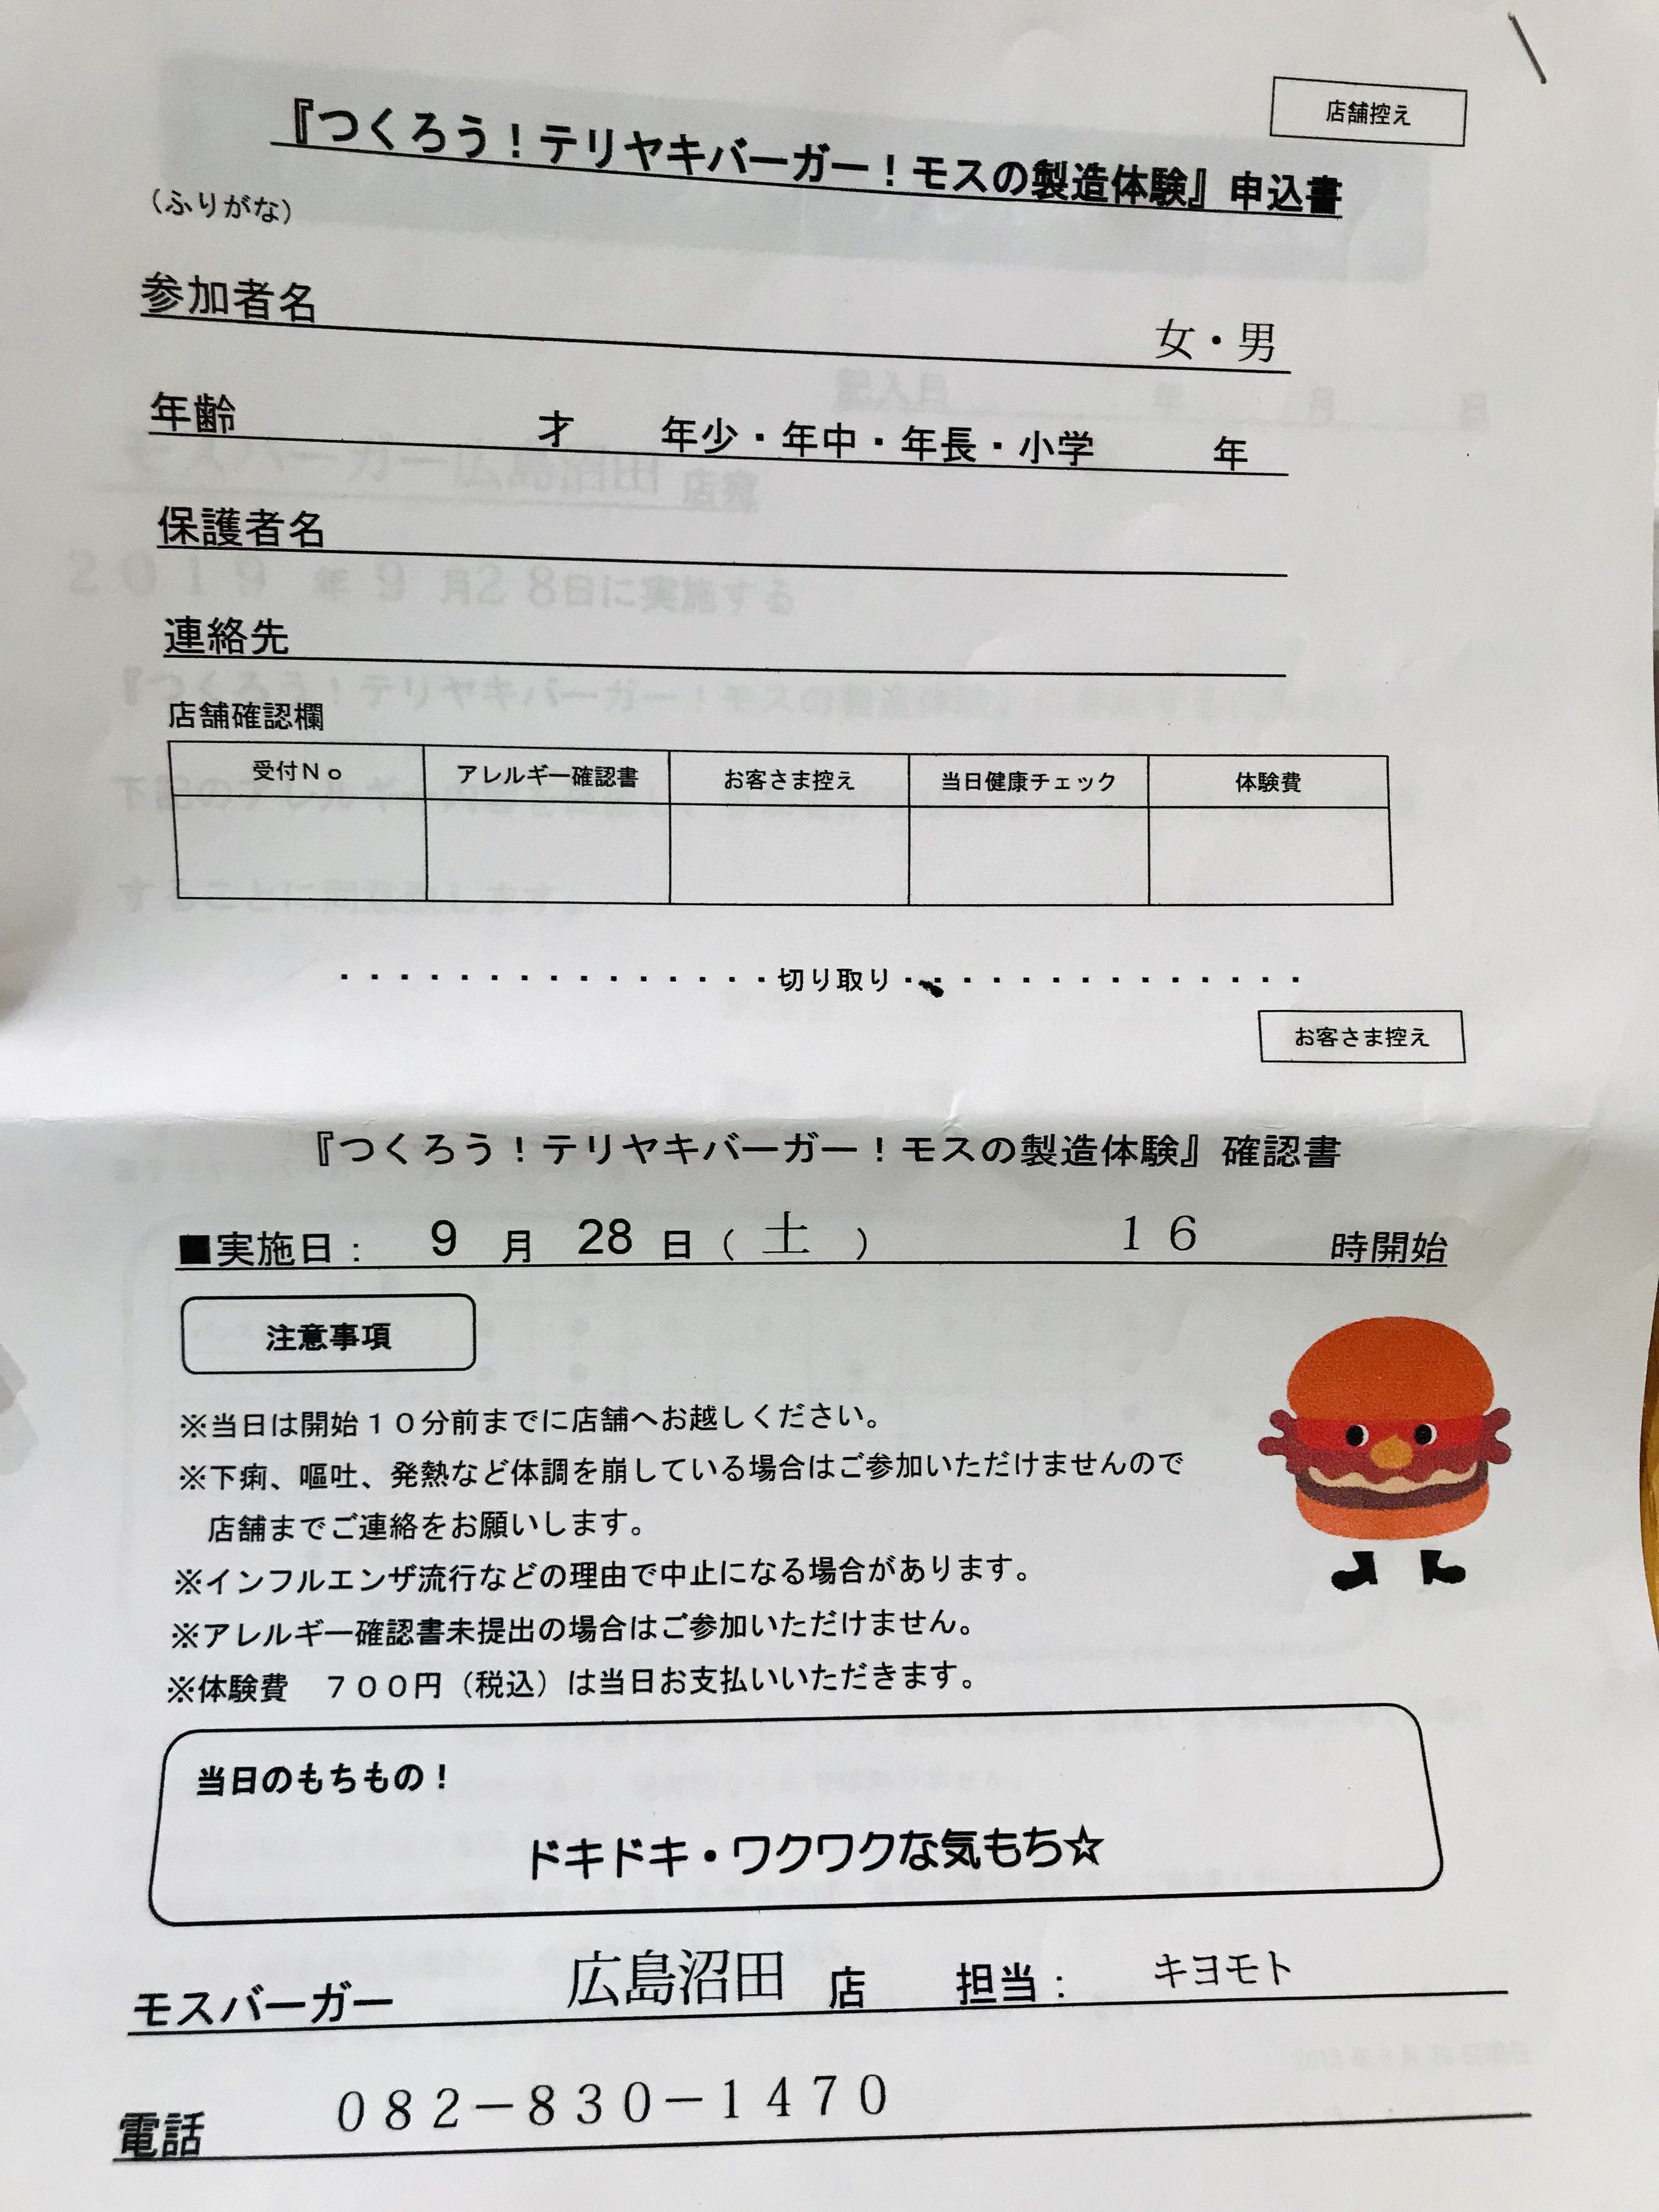 店舗控え
『つくろう！テリヤキバーガー！モスの製造体験』申込書
（ふりがな）
参加者名 女・男
年齢 才 年少・年中・年長・小学 年
保護者名
連絡先
店舗確認欄
受付Ｎｏ アレルギー確認書 お客さま控え 当日健康チェック 体験費
・・・・・・・・・・・・・・・切り取り・・・・・・・・・・・・・・
お客さま控え
『つくろう！テリヤキバーガー！モスの製造体験』確認書
■実施日： 9 月 28 日（ 土 ） １６ 時開始
注意事項
※当日は開始１０分前までに店舗へお越しください。
※下痢、嘔吐、発熱など体調を崩している場合はご参加いただけませんので
店舗までご連絡をお願いします。
※インフルエンザ流行などの理由で中止になる場合があります。
※アレルギー確認書未提出の場合はご参加いただけません。
※体験費　７００円（税込）は当日お支払いいただきます。
当日のもちもの！
ドキドキ・ワクワクな気もち☆
モスバーガー 広島沼田 店 担当： キヨモト
電話 ０８２－８３０－１４７０